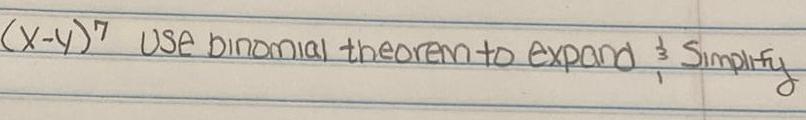 (x-y)⁷ Use binomial theorem to expand & Simplify